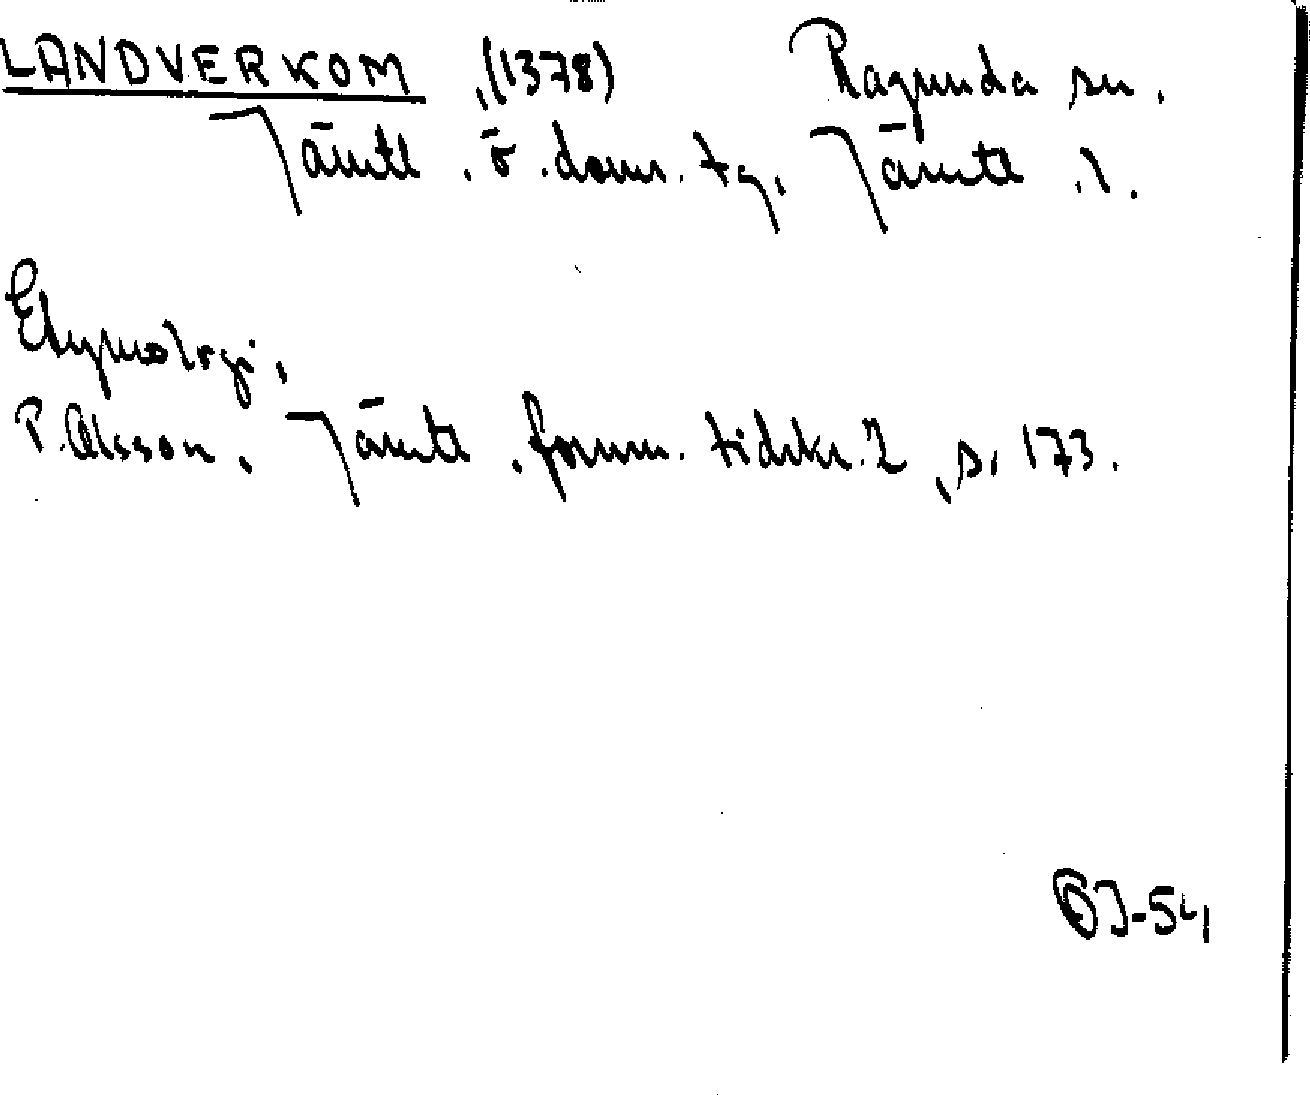 LANDVERKOM, (1378) Ragunda sn.
Jämtl. ö. doms. tg. Jämtl. l.
Etymologi.
P. Olsson, Jämtl. fornm. tidskr. 2, s. 173.